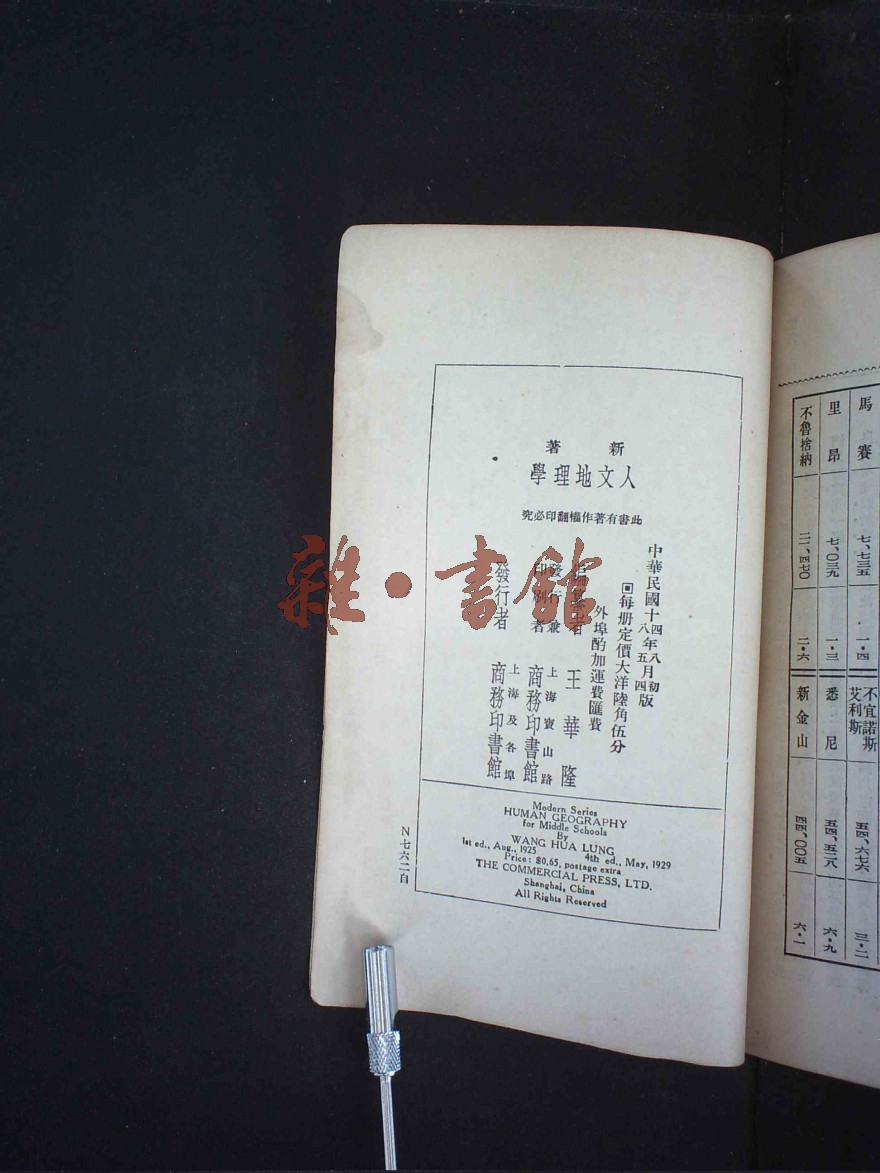 新著
人文地理學
此書有著作權翻印必究
中華民國十四年八月初版
八 五 四
每册定價大洋陸角伍分
外埠酌加運費匯費
編纂者 王華隆
發行兼印刷者 上海寶山路 商務印書館
發行者 上海及各埠 商務印書館
N七六二自
Modern Series
HUMAN GEOGRAPHY
for Middle Schools
By
WANG HUA LUNG
1st ed., Aug., 1925 4th ed., May, 1929
Price: $0.65, postage extra
THE COMMERCIAL PRESS, LTD.
Shanghai, China
All Rights Reserved
雜·書館
馬賽 七、七三五 一·四 不宜諾斯艾利斯 五四、六七六 三·二
里昂 七、〇三九 一·三 悉尼 五四、五二八 六·九
不魯捨納 二一、四七〇 二·六 新金山 四四、〇〇五 六·一